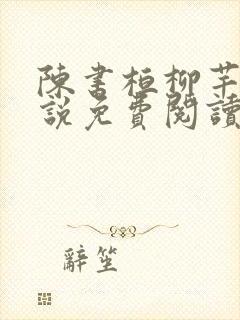 陳書桓柳芊
說免費閱讀
辭笙